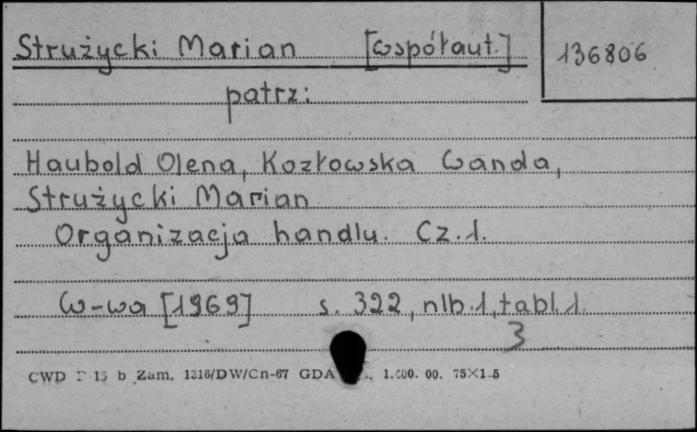 Strużycki Marian [współaut.] 136806
patrz:
Haubold Olena, Kozłowska Wanda,
Strużycki Marian
Organizacja handlu. Cz.1.
W-wa [1969] s. 322, nlb.1, tabl.1.
3
CWD 15 b Zam. 1316/DW/Cn-67 GDA